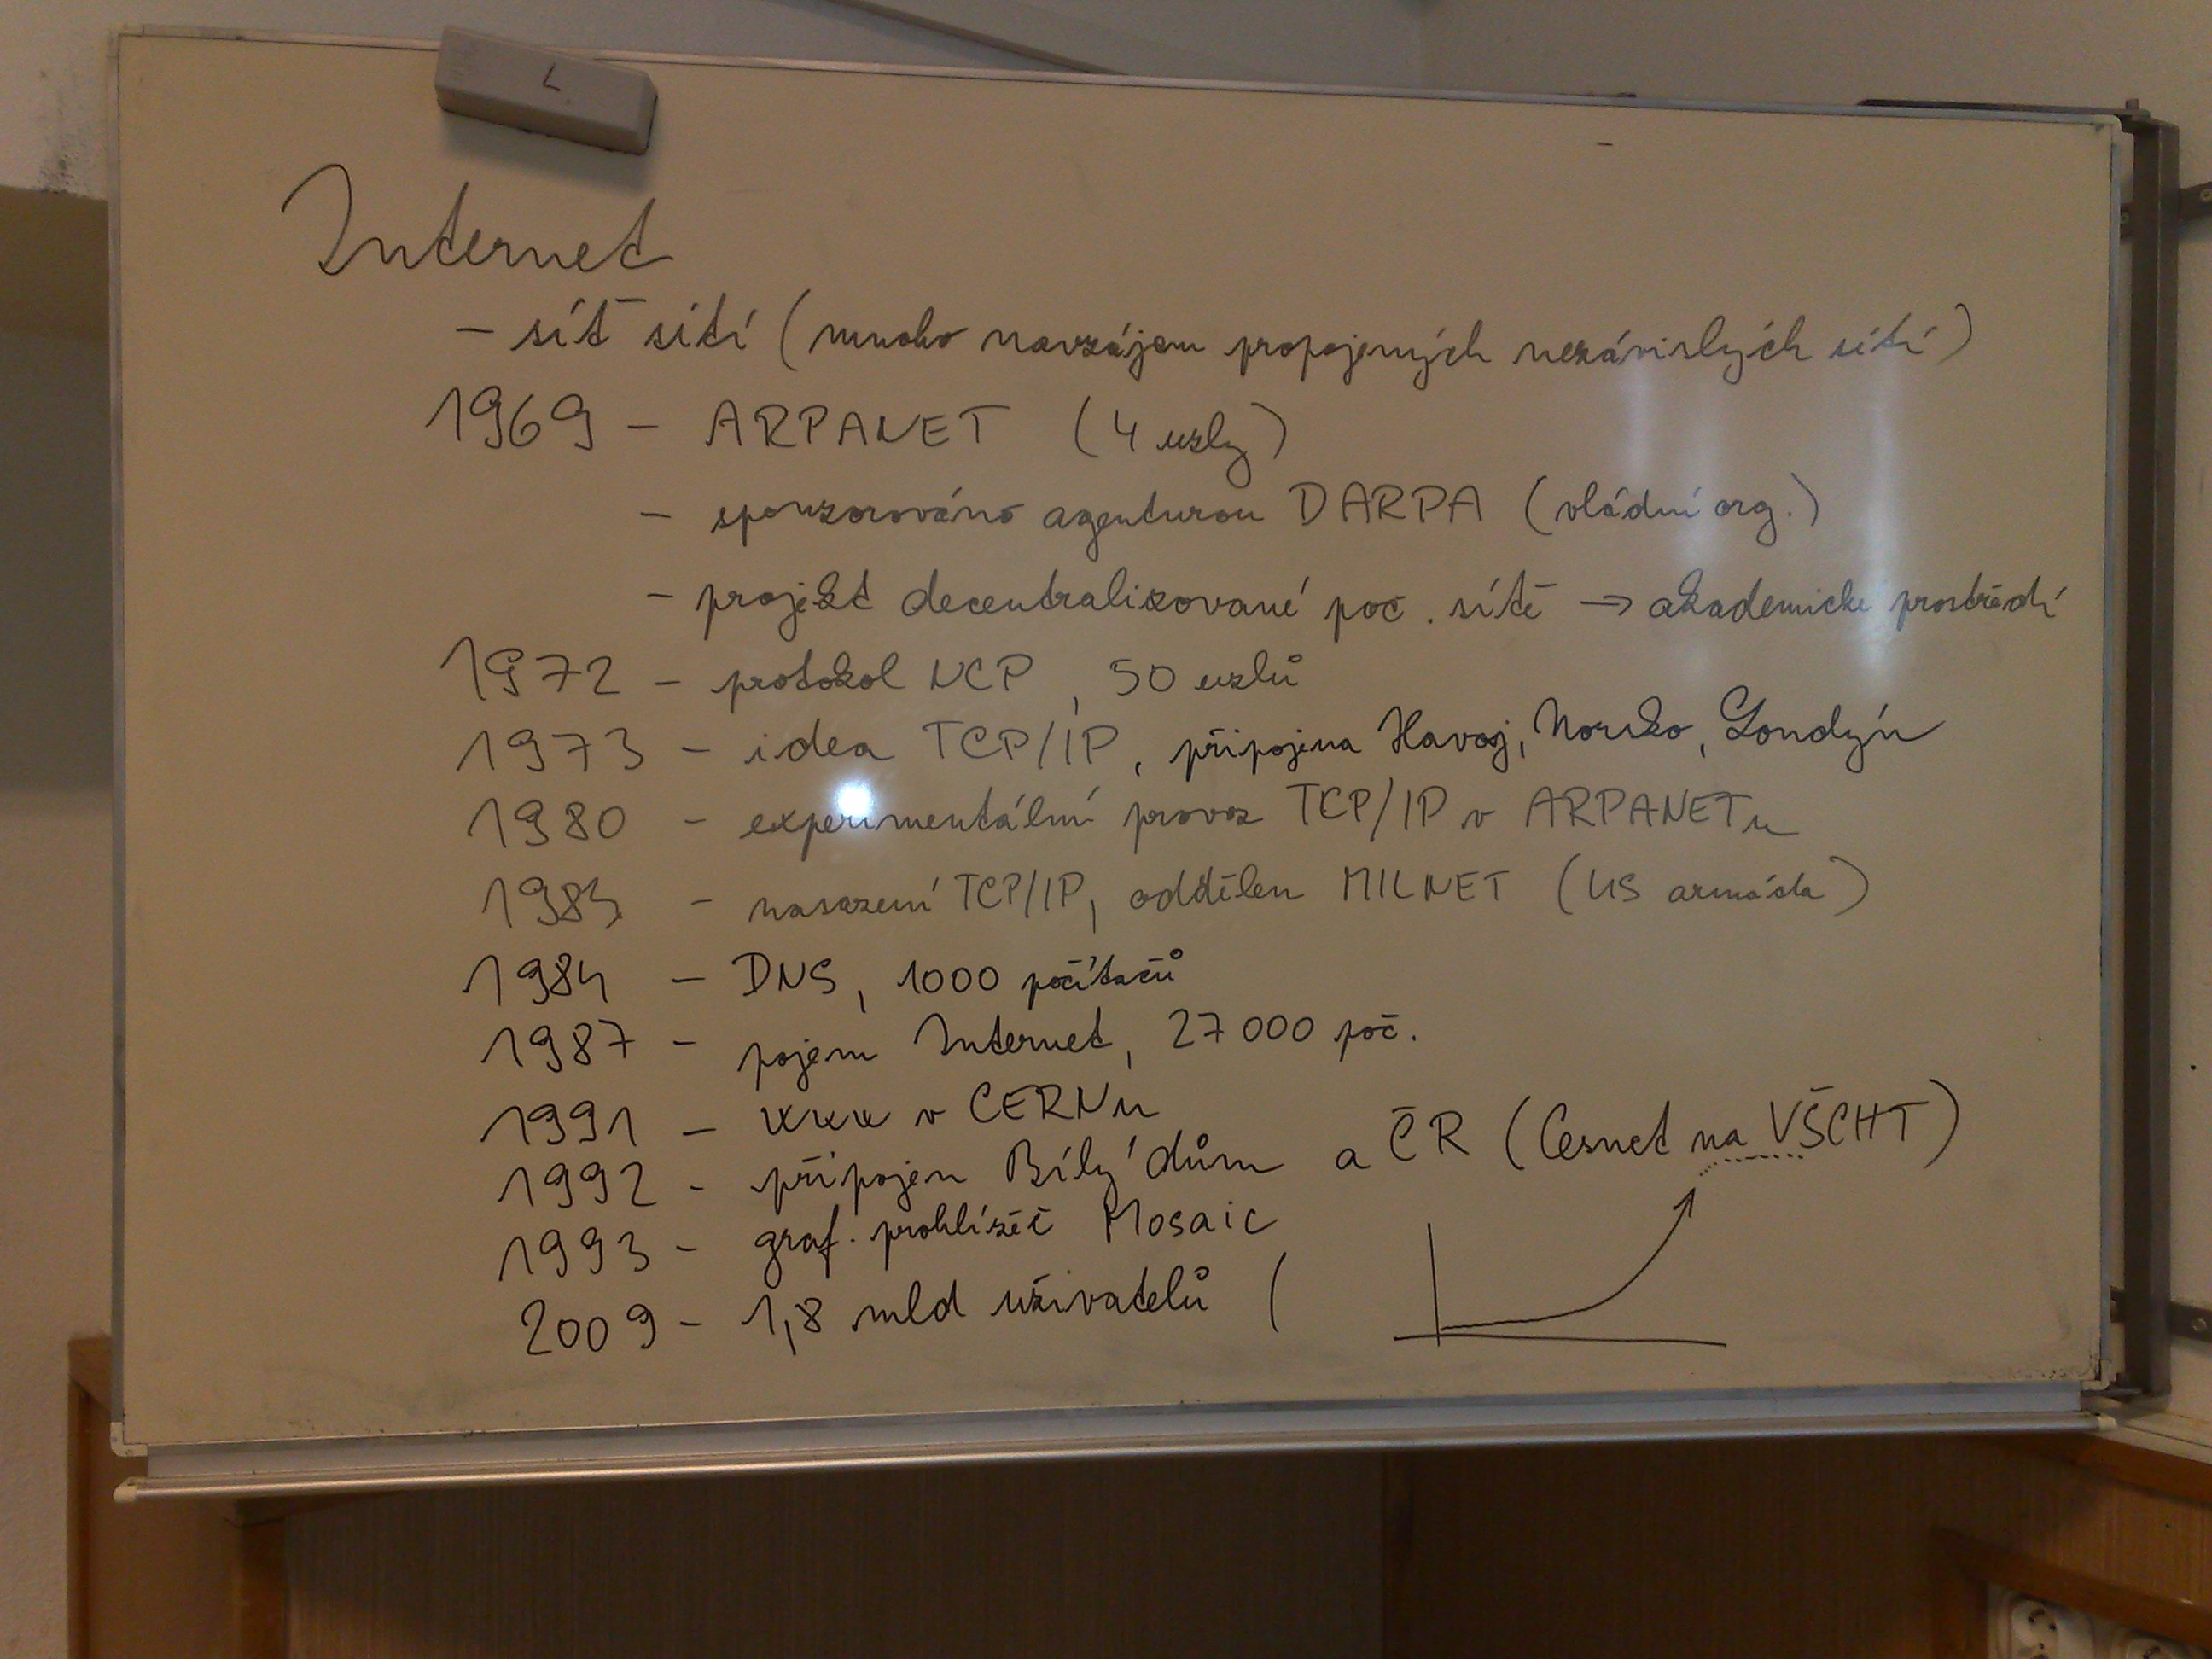 L
Internet
- síť sítí (mnoho navzájem propojených nezávislých sítí)
1969 - ARPANET (4 uzly)
- sponzorováno agenturou DARPA (vládní org.)
- projekt decentralizované poč. sítě → akademické prostředí
1972 - protokol NCP, 50 uzlů
1973 - idea TCP/IP, připojena Havaj, Norsko, Londýn
1980 - experimentální provoz TCP/IP v ARPANETu
1983 - nasazení TCP/IP, oddělen MILNET (US armáda)
1984 - DNS, 1000 počítačů
1987 - pojem Internet, 27 000 poč.
1991 - www v CERNu
1992 - připojen Bílý dům a ČR (Cesnet na VŠCHT)
1993 - graf. prohlížeč Mosaic
2009 - 1,8 mld uživatelů (